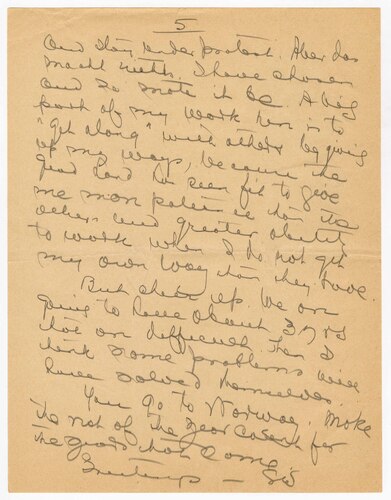 5
and stay under protest. Aber das
macht nichts. I have chosen
and so mote it be. A big
part of my work here is to
"get along" with others by giving
up my ways, because the
good Lord has seen fit to give
me more patience than the
others and greater ability
to work when I do not get
my own way than they have.
But cheer up. We are
going to have about 3 yrs
that are difficult then I
think some problems will
have solved themselves.
You go to Norway. Make
the rest of the year count for
the good that come
Greetings —